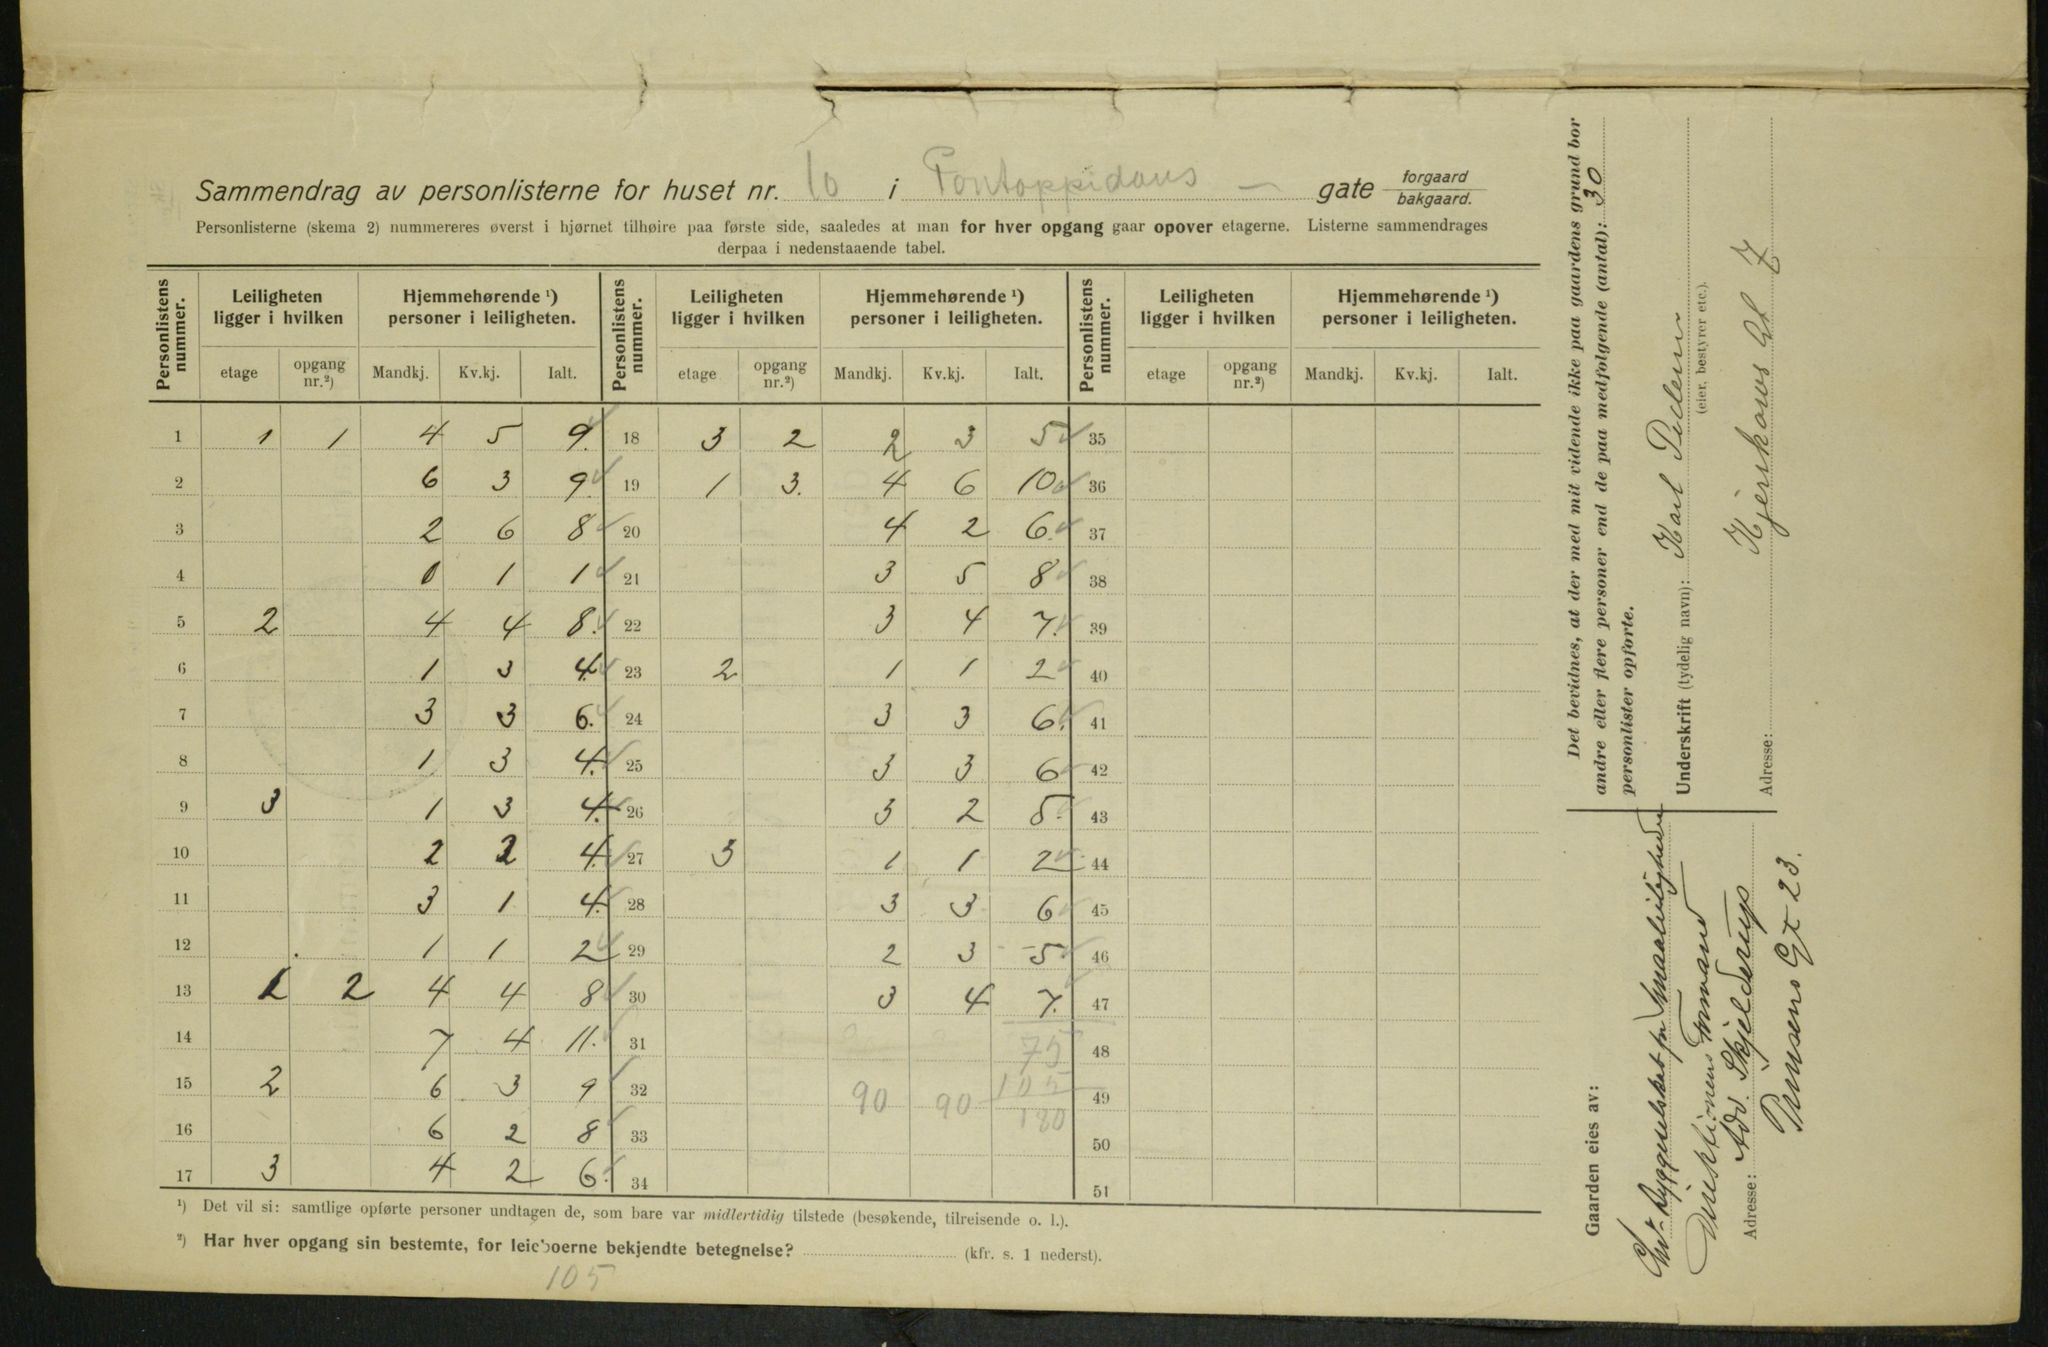 Sammendrag av personlisterne for huset nr. 10 i Pontoppidans — gate forgaard bakgaard.
Personlisterne (skema 2) nummereres øverst i hjørnet tilhøire paa første side, saaledes at man for hver opgang gaar opover etagerne. Listerne sammendrages
derpaa i nedenstaaende tabel.
Personlistens nummer. Leiligheten ligger i hvilken Hjemmehørende ¹) personer i leiligheten. Personlistens nummer. Leiligheten ligger i hvilken Hjemmehørende ¹) personer i leiligheten. Personlistens nummer. Leiligheten ligger i hvilken Hjemmehørende ¹) personer i leiligheten.
etage opgang nr.²) Mandkj. Kv.kj. Ialt. etage opgang nr.²) Mandkj. Kv.kj. Ialt. etage opgang nr.²) Mandkj. Kv.kj. Ialt.
1 1 1 4 5 9. 18 3 2 2 3 5 35
2 6 3 9. 19 1 3. 4 6 10 36
3 2 6 8 20 4 2 6. 37
4 0 1 1 21 3 5 8 38
5 2 4 4 8. 22 3 4 7. 39
6 1 3 4. 23 2 1 1 2 40
7 3 3 6. 24 3 3 6. 41
8 1 3 4. 25 3 3 6 42
9 3 1 3 4. 26 3 2 5. 43
10 2 2 4. 27 3 1 1 2 44
11 3 1 4. 28 3 3 6 45
12 1 1 2 29 2 3 5 46
13 1 2 4 4 8 30 3 4 7. 47
14 7 4 11. 31 75 48
15 2 6 3 9 32 90 90 105 49
16 6 2 8 33 180 50
17 3 4 2 6. 34 51
¹) Det vil si: samtlige opførte personer undtagen de, som bare var midlertidig tilstede (besøkende, tilreisende o. l.).
²) Har hver opgang sin bestemte, for leieboerne bekjendte betegnelse? (kfr. s. 1 nederst).
105
Det bevidnes, at der med mit vidende ikke paa gaardens grund bor
andre eller flere personer end de paa medfølgende (antal): 30
personlister opførte.
Underskrift (tydelig navn): Karl Pedersen
(eier, bestyrer etc.).
Adresse: Hjerkouns Gt 7
Gaarden eies av:
Byggeselskapet for Smaaleiligheter
Direktionens Formand
Adresse: Adv. Skjelderup
Prinsens Gt 23.